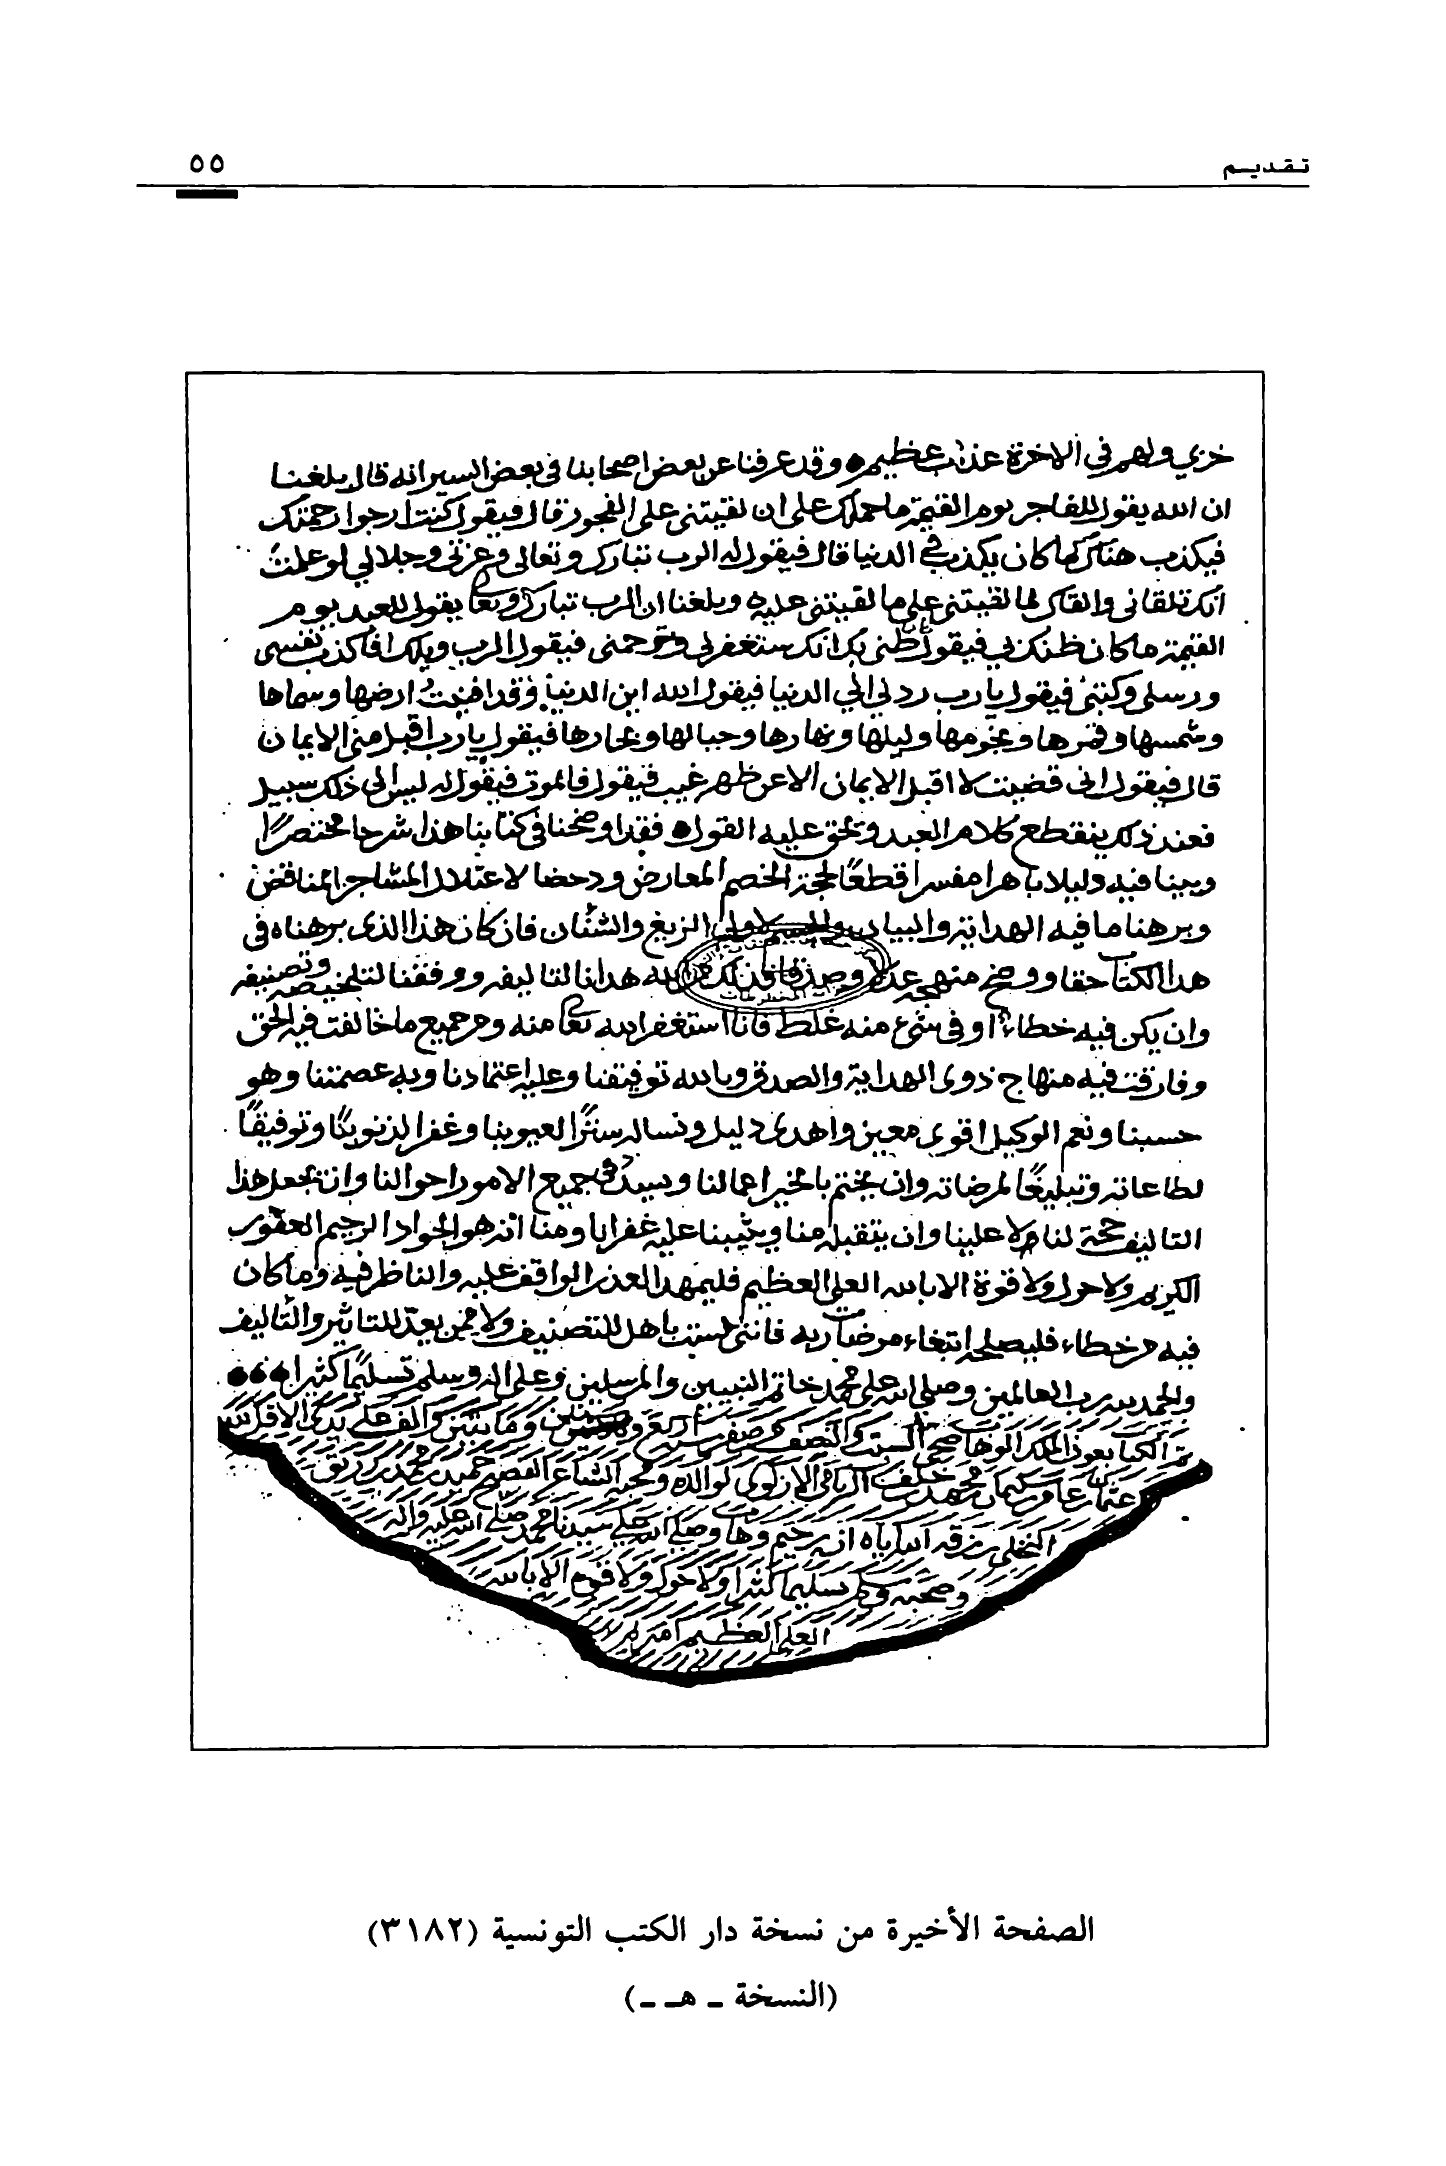 تقديم
٥٥
خزي ولهم في الاخرة عذاب عظيم وقد عرفنا عن بعض اصحابنا في بعض السير انه قال بلغنا
ان الله يقول للفاجر يوم القيمة ما حملك على ان لقيتني على الفجور قال فيقول كنت ارجوا رحمتك
فيكذب هناك كما كان يكذب في الدنيا قال فيقول له الرب تبارك وتعالى وعزتي وجلالي لو علمت
انك تلقاني والقاك لما لقيتني على ما لقيتني عليه وبلغنا ان الرب تبارك وتعا يقول للعبد يوم
القيمة ما كان ظنك بي فيقول ظني بك انك ستغفر لي وترحمني فيقول الرب ويلك افاكذب نفسي
ورسلي وكتبي فيقول يا رب ردني الي الدنيا فيقول الله اين الدنيا وقد افنيت ارضها وسماها
وشمسها وقمرها ونجومها وليلها ونهارها وجبالها وبحارها فيقول يا رب اقبل مني الايمان
قال فيقول اني قضيت لا اقبل الايمان الا عن ظهر غيب فيقول فالموت فيقول له ليس الى ذلك سبيل
فعند ذلك ينقطع كلام العبد ويحق عليه القول فقد اوضحنا في كتابنا هذا شرحا مختصرًا
وبينا فيه دليلا باهرا مفسرا قطعًا لحجة الخصم المعارض ودحضا لاعتلال المشاجر المناقض
وبرهنا ما فيه الهداية والبيان الزيغ والشنان فان كان هذا الذي برهناه في
هذا الكتاب حقا ووضح منهجه عدلا وصدقا فذلك من الله هدانا لتاليفه ووفقنا لتلخيصه وتصنيفه
وان يكن فيه خطاء او في شيء منه غلط فانا استغفر الله تعا منه ومن جميع ما خالفت فيه الحق
وفارقت فيه منهاج ذوي الهداية والصدق وبالله توفيقنا وعليه اعتمادنا وبه عصمتنا وهو
حسبنا ونعم الوكيل اقوى معين واهدى دليل ونساله سترًا لعيوبنا وغفرا لذنوبنا وتوفيقًا
لطاعاته وتبليغًا لمرضاته وان يختم بالخير اعمالنا ويسددنا في جميع الامور احوالنا وان يجعل هذا
التاليف حجة لنا ولا علينا وان يتقبله منا ويثيبنا عليه غفرانا ومنا انه هو الجواد الرحيم العفو
الكريم ولا حول ولا قوة الا بالله العلي العظيم فليمهد العذر الواقف عليه والناظر فيه وما كان
فيه من خطاء فليصلحه ابتغاء مرضات ربه فانني لست باهل للتصنيف ولا ممن يعد للتاثير والتاليف
والحمد لله رب العالمين وصلى الله على محمد خاتم النبيين والمرسلين وعلى اله وسلم تسليمًا كثيرا
تم الكتاب بعون الملك الوهاب ضحى السبت والنصف من صفر سنة وما يتين والف على يد الاقل
عثمان عامر سليمان محمد خلف لوالده ومحبه الشاعر الفصيح حميد بن محمد بن رزيق
النخلي رزقه الله اياه انه رحيم وهاب وصلى الله على سيدنا محمد صلى الله عليه واله
وصحبه وسلم تسليما كثيرا ولا حول ولا قوة الا بالله
العلي العظيم امين
الصفحة الأخيرة من نسخة دار الكتب التونسية (٣١٨٢)
(النسخة ـ هـ ـ)